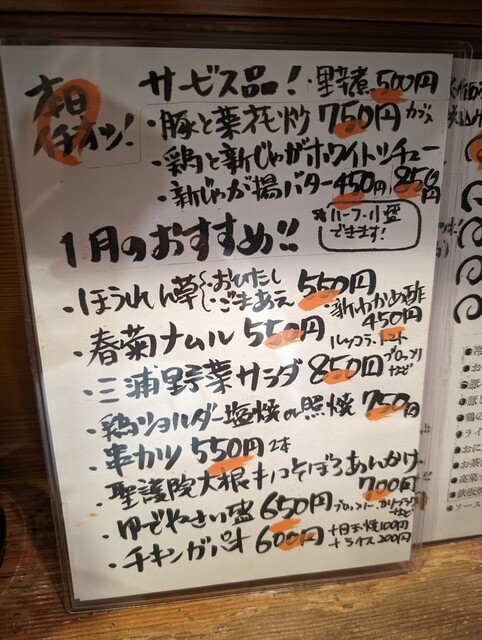 本日
イチオシ!
サービス品!・野菜煮 500円
・豚と菜花炒 750円 カブ入
・鶏と新じゃがホワイトシチュー
850円
・新じゃが揚バター 450円
※ハーフ・小盛
できます!
1月のおすすめ!!
・ほうれん草〜おひたし
〜ごまあえ 550円
・春菊ナムル 550円
・新わかめ酢
450円
・三浦野菜サラダ 850円
ルッコラ、トマト
ブロッコリ
など
・鶏ショルダー塩焼or照焼 750円
・串カツ 550円 2本
・聖護院大根キノコそぼろあんかけ
700円
・ゆでやさい盛 650円
ブロッコリー、カリフラワー
など
・チキンガパオ 600円
+目玉焼100円
+ライス200円